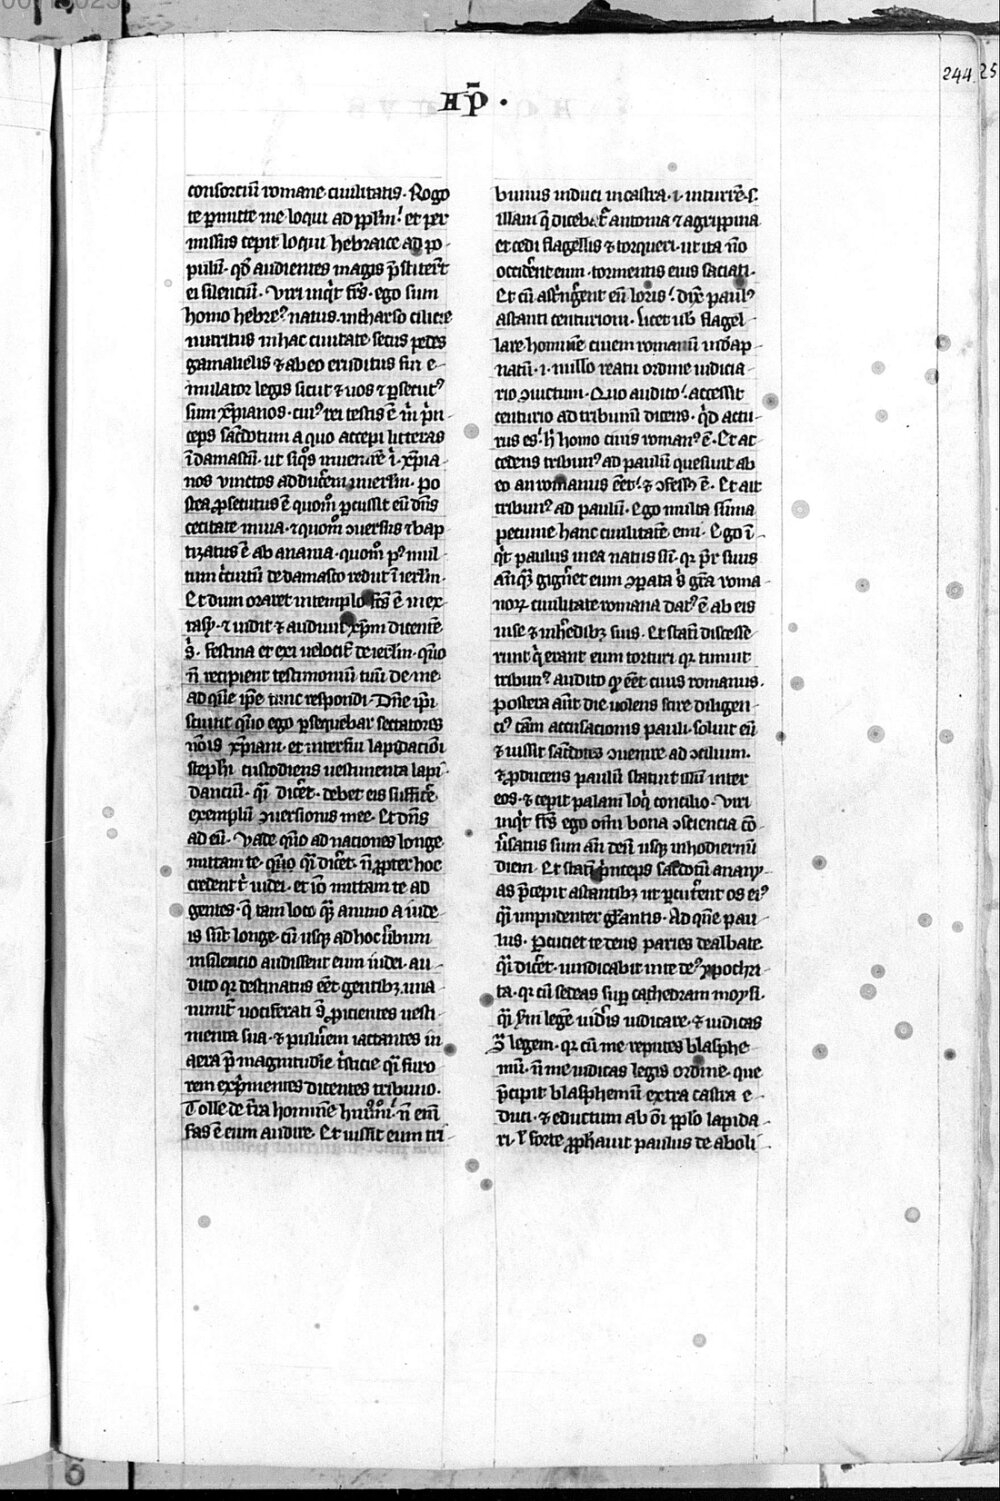 244 25
Ap̄ .
consorciū romane ciuilitatis. Rogo
te ꝑmitte me loqui ad pplm̄. et per
missus cepit loqui hebraice ad po-
pulū. qd̄ audientes magis p̄stiterūt
ei silenciū. Viri inqt̄ frs̄. ego sum
homo hebreꝰ natus in tharso cilicie
nutritus in hac ciuitate secus pedes
gamalielis ⁊ ab eo eruditus fui e-
mulator legis sicut ⁊ uos ⁊ ꝑsecutꝰ
sum xp̄ianos. cuiꝰ rei testis ē m̄ pⁱn-
ceps sacdotum a quo accepi litteras
ī damascū. ut siqͦs inuenirē ī xp̄ia-
nos vinctos adducerem in ierlm̄. po
stea ꝓsecutus ē quom̊ ꝑcussit eū dn̄s
cecitate miua. ⁊ quom̊ ꝯuersus ⁊ bap
tizatus ē ab anania. quom̊ pꝰ mul-
tum cⁱcuitū de damasco rediit ī ierlm̄.
Et dum oraret in templo fcs̄ ē in ex-
tasy. ⁊ uidit ⁊ audiuit xp̄m dicentē
s̄. festina et exi uelocit̄ de ierlm̄. qm̄o
n̄ recipient testimoniū tuū de me
ad quē ip̄e tunc respondi. Dn̄e ip̄i
sciunt qm̄o ego ꝑsequebar sectatores
nōis xp̄iani. et interfui lapidacōi
stephi custodiens uestimenta lapi-
danciū. qi̅ dicēt. debet eis sufficē
exemplū ꝯuersionis mee. Et dn̄s
ad eū. Vade qm̄o ad naciones longe
mittam te. qm̄o qi̅ dicēt. n̄ ꝓpter hoc
credent t̄ iudei. et iō mittam te ad
gentes. q̄ tam loco qͣꝫ animo a iude
is sūt longe. cū usqꝫ ad hoc ūbum
in silencio audissent eum iudei. au-
dito qꝛ destinatus eēt gentibꝫ. una-
nimit̄ uociferati s̄ ꝓicientes uesti-
menta sua. ⁊ puluerem iactantes in
aera p̄ magnitudie tⁱsticie qi̅ furo
rem exp̄mentes dicentes tribuno.
Tolle de tr̄a hominē huiꝰmōi. n̄ em̄
fas ē eum uiuere. Et iussit eum tri-
bunus induci in castra .i. in turrē s.
illam q̄ dicebat̄ antonia ⁊ agrippina
et cedi flagellis ⁊ torqueri. ut ita nō
occidēnt eum. tormentis eius saciati.
Et cū astⁱngēent eū loris. dix̄ paulꝰ
astanti centurioni. Licet uob̄ flagel-
lare hominē ciuem romanū indāp-
natū .i. nullo reatu ordine iudicia-
rio ꝯuictum. Quo audito. accessit
centurio ad tribunū dicens. qⁱd actu-
rus es. h̄ homo ciuis romanꝰ ē. Et ac-
cedens tribunꝰ ad paulū quesiuit ab
eo an romanus eēt. ⁊ ꝯfessꝰ ē. Et ait
tribunꝰ ad paulū. Ego multa sūma
pecunie hanc ciuilitatē emi. Ego ī-
qⁱt paulus in ea natus sū. qꝛ pr̄ suus
anqͣꝫ gignēt eum ꝯparata s̄ gr̄a roma-
norꝫ ciuilitate romana datꝰ ē ab eis
in se ⁊ in hēdibꝫ suis. Et statī discesse
runt qⁱ erant eum torturi qꝛ timuit
tribunꝰ audito qꝫ eēt ciuis romanus.
postera aūt die uolens scire diligen-
ciꝰ cām accusacionis pauli. soluit eū
⁊ iussit sacdotes ꝯuenire ad ꝯcilium.
⁊ ꝓducens paulū statuit illū inter
eos. ⁊ cepit palam loqⁱ concilio. Viri
inqⁱt frs̄ ego oīni bona ꝯsciencia cō-
ūsatus sum an̄ deū usqꝫ in hodiernū
diem. Et statī pⁱnceps sacdotū anany-
as p̄cepit astantibꝫ ut ꝑcutēent os eiꝰ
qi̅ impudenter gl̄antis. Ad quē pau-
lus. Percuciet te deus paries dealbate.
qi̅ dicēt. uindicabit in te deꝰ ypocri-
ta. qꝛ cū sedeas suꝑ cathedram moysi.
qi̅ scd̄m legē uidēis iudicare. ⁊ iudicas
ꝯͣ legem. qꝛ cū me reputes blasphe
mū. n̄ me iudicas legis ordine. que
p̄cipit blasphemū extra castra e-
duci. ⁊ eductum ab oī pplo lapida-
ri. ł forte ꝓphauit paulus de aboli